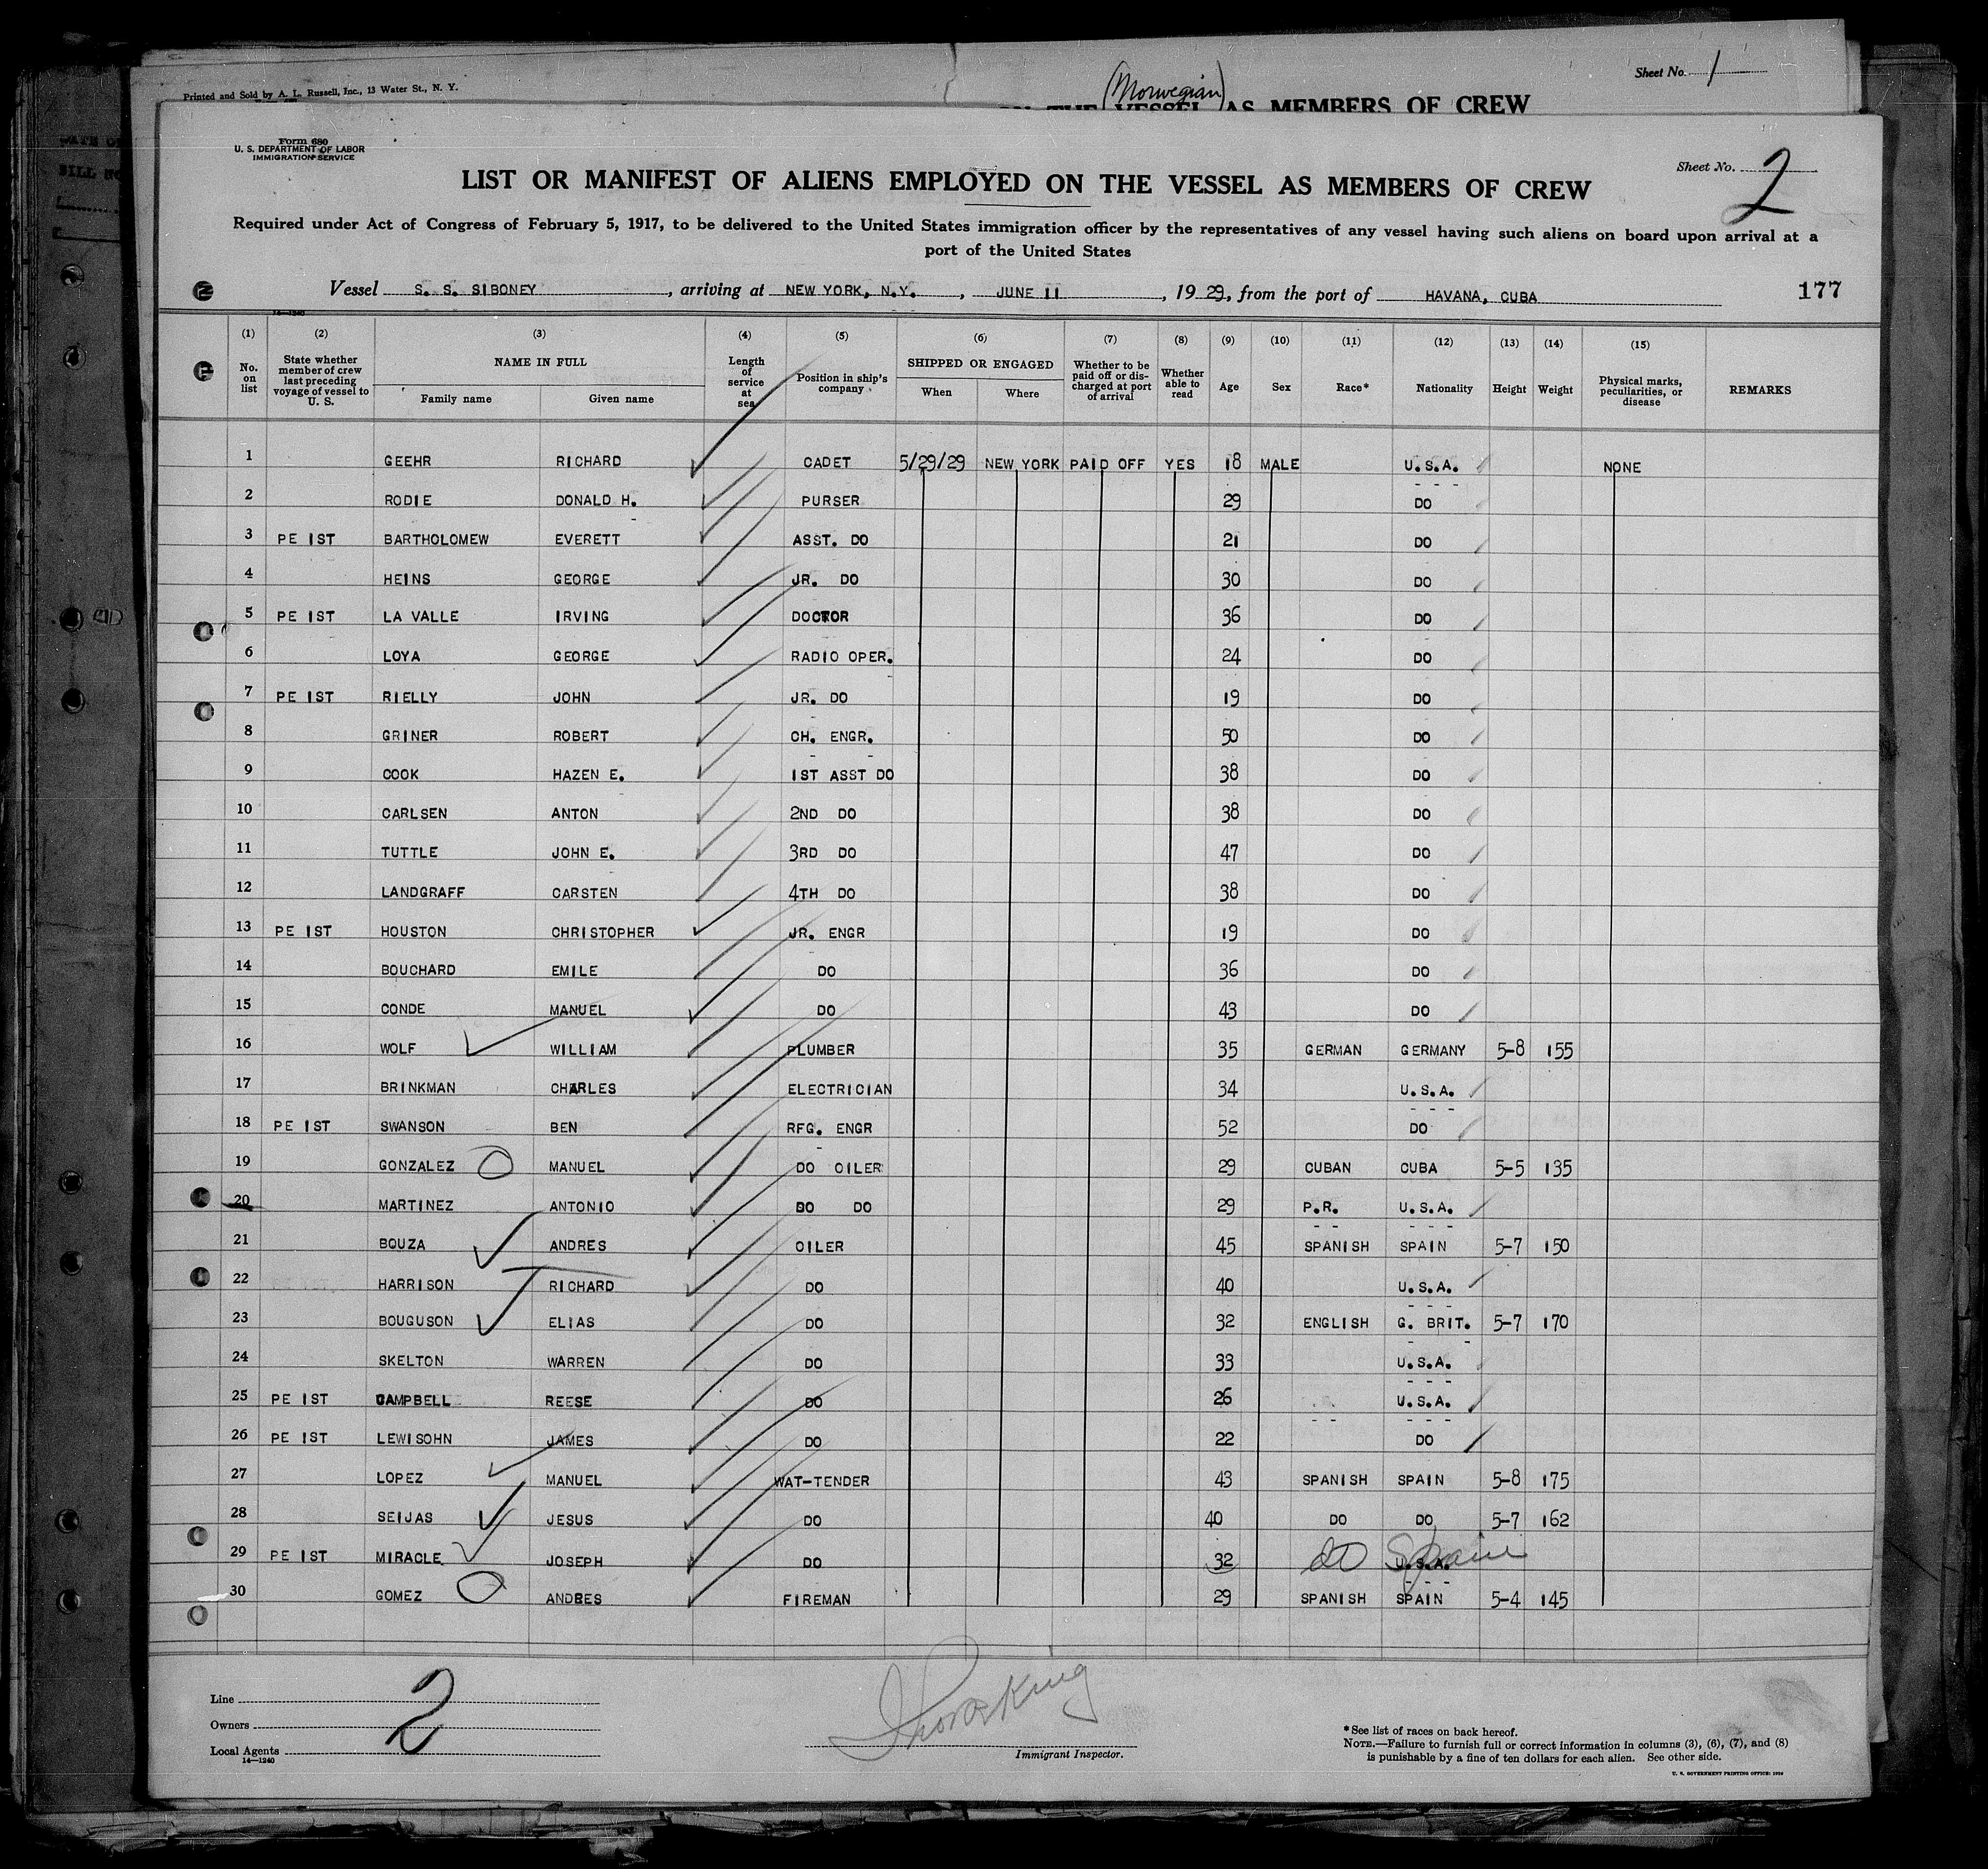 Printed and Sold by A. L. Russell, Inc., 13 Water St., N. Y.
Sheet No. 1
(Norwegian)
ON THE VESSEL AS MEMBERS OF CREW
Form 680
U. S. DEPARTMENT OF LABOR
IMMIGRATION SERVICE
Sheet No. 2
LIST OR MANIFEST OF ALIENS EMPLOYED ON THE VESSEL AS MEMBERS OF CREW
Required under Act of Congress of February 5, 1917, to be delivered to the United States immigration officer by the representatives of any vessel having such aliens on board upon arrival at a
port of the United States
Vessel S. S. SIBONEY, arriving at NEW YORK, N.Y., JUNE 11, 1929, from the port of HAVANA, CUBA 177
(1) (2) (3) (4) (5) (6) (7) (8) (9) (10) (11) (12) (13) (14) (15)
No. on list State whether member of crew last preceding voyage of vessel to U. S. NAME IN FULL Family name Given name Length of service at sea Position in ship's company SHIPPED OR ENGAGED When Where Whether to be paid off or discharged at port of arrival Whether able to read Age Sex Race* Nationality Height Weight Physical marks, peculiarities, or disease REMARKS
1 GEEHR RICHARD CADET 5/29/29 NEW YORK PAID OFF YES 18 MALE U.S.A. NONE
2 RODIE DONALD H. PURSER 29 DO
3 PE 1ST BARTHOLOMEW EVERETT ASST. DO 21 DO
4 HEINS GEORGE JR. DO 30 DO
5 PE 1ST LA VALLE IRVING DOCTOR 36 DO
6 LOYA GEORGE RADIO OPER. 24 DO
7 PE 1ST RIELLY JOHN JR. DO 19 DO
8 GRINER ROBERT CH. ENGR. 50 DO
9 COOK HAZEN E. 1ST ASST DO 38 DO
10 CARLSEN ANTON 2ND DO 38 DO
11 TUTTLE JOHN E. 3RD DO 47 DO
12 LANDGRAFF CARSTEN 4TH DO 38 DO
13 PE 1ST HOUSTON CHRISTOPHER JR. ENGR 19 DO
14 BOUCHARD EMILE DO 36 DO
15 CONDE MANUEL DO 43 DO
16 WOLF WILLIAM PLUMBER 35 GERMAN GERMANY 5-8 155
17 BRINKMAN CHARLES ELECTRICIAN 34 U.S.A.
18 PE 1ST SWANSON BEN RFG. ENGR 52 DO
19 GONZALEZ MANUEL DO OILER 29 CUBAN CUBA 5-5 135
20 MARTINEZ ANTONIO DO DO 29 P.R. U.S.A.
21 BOUZA ANDRES OILER 45 SPANISH SPAIN 5-7 150
22 HARRISON RICHARD DO 40 U.S.A.
23 BOUGUSON ELIAS DO 32 ENGLISH G. BRIT. 5-7 170
24 SKELTON WARREN DO 33 U.S.A.
25 PE 1ST CAMPBELL REESE DO 26 U.S.A.
26 PE 1ST LEWISOHN JAMES DO 22 DO
27 LOPEZ MANUEL WAT-TENDER 43 SPANISH SPAIN 5-8 175
28 SEIJAS JESUS DO 40 DO DO 5-7 162
29 PE 1ST MIRACLE JOSEPH DO 32 do U.S.A. Spain
30 GOMEZ ANDRES FIREMAN 29 SPANISH SPAIN 5-4 145
Line
Owners
Local Agents
14—1240
2
Immigrant Inspector.
*See list of races on back hereof.
NOTE.—Failure to furnish full or correct information in columns (3), (6), (7), and (8)
is punishable by a fine of ten dollars for each alien. See other side.